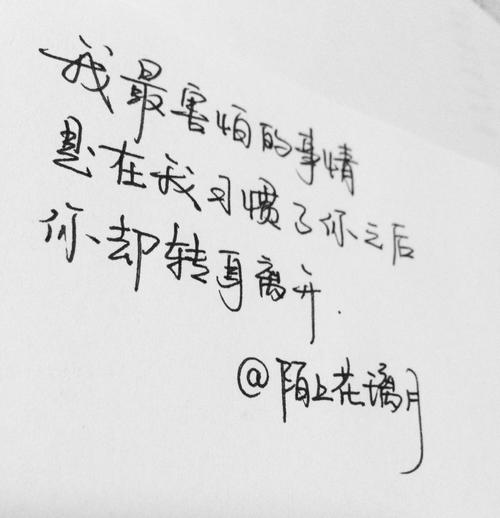 我最害怕的事情
是在我习惯了你之后
你、却转身离开.
@陌上花漓月